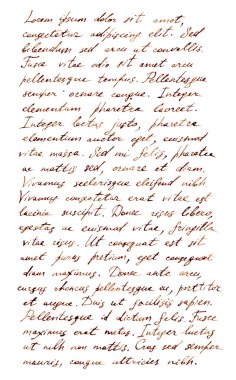 Lorem ipsum dolor sit amet,
consectetur adipiscing elit. Sed
bibendum sed arcu ut convallis.
Fusce vitae odio sit amet arcu
pellentesque tempus. Pellentesque
semper ornare congue. Integer
elementum pharetra laoreet.
Integer lectus justo, pharetra
elementum auctor eget, euismod
vitae massa. Sed mi felis, pharetra
ac mattis sed, ornare et diam.
Vivamus scelerisque eleifend nibh
Vivamus consectetur erat vitae est
lacinia suscipit. Donec risus libero,
egestas ac euismod vitae, fringilla
vitae risus. Ut consequat est sit
amet purus pretium, eget consequat
diam maximus. Donec ante arcu,
cursus rhoncus pellentesque eu, porttitor
et augue. Duis ut facilisis sapien.
Pellentesque id dictum felis. Fusce
maximus erat metus. Integer luctus
ut nibh non mattis. Cras sed semper
mauris, congue ultricies nibh.